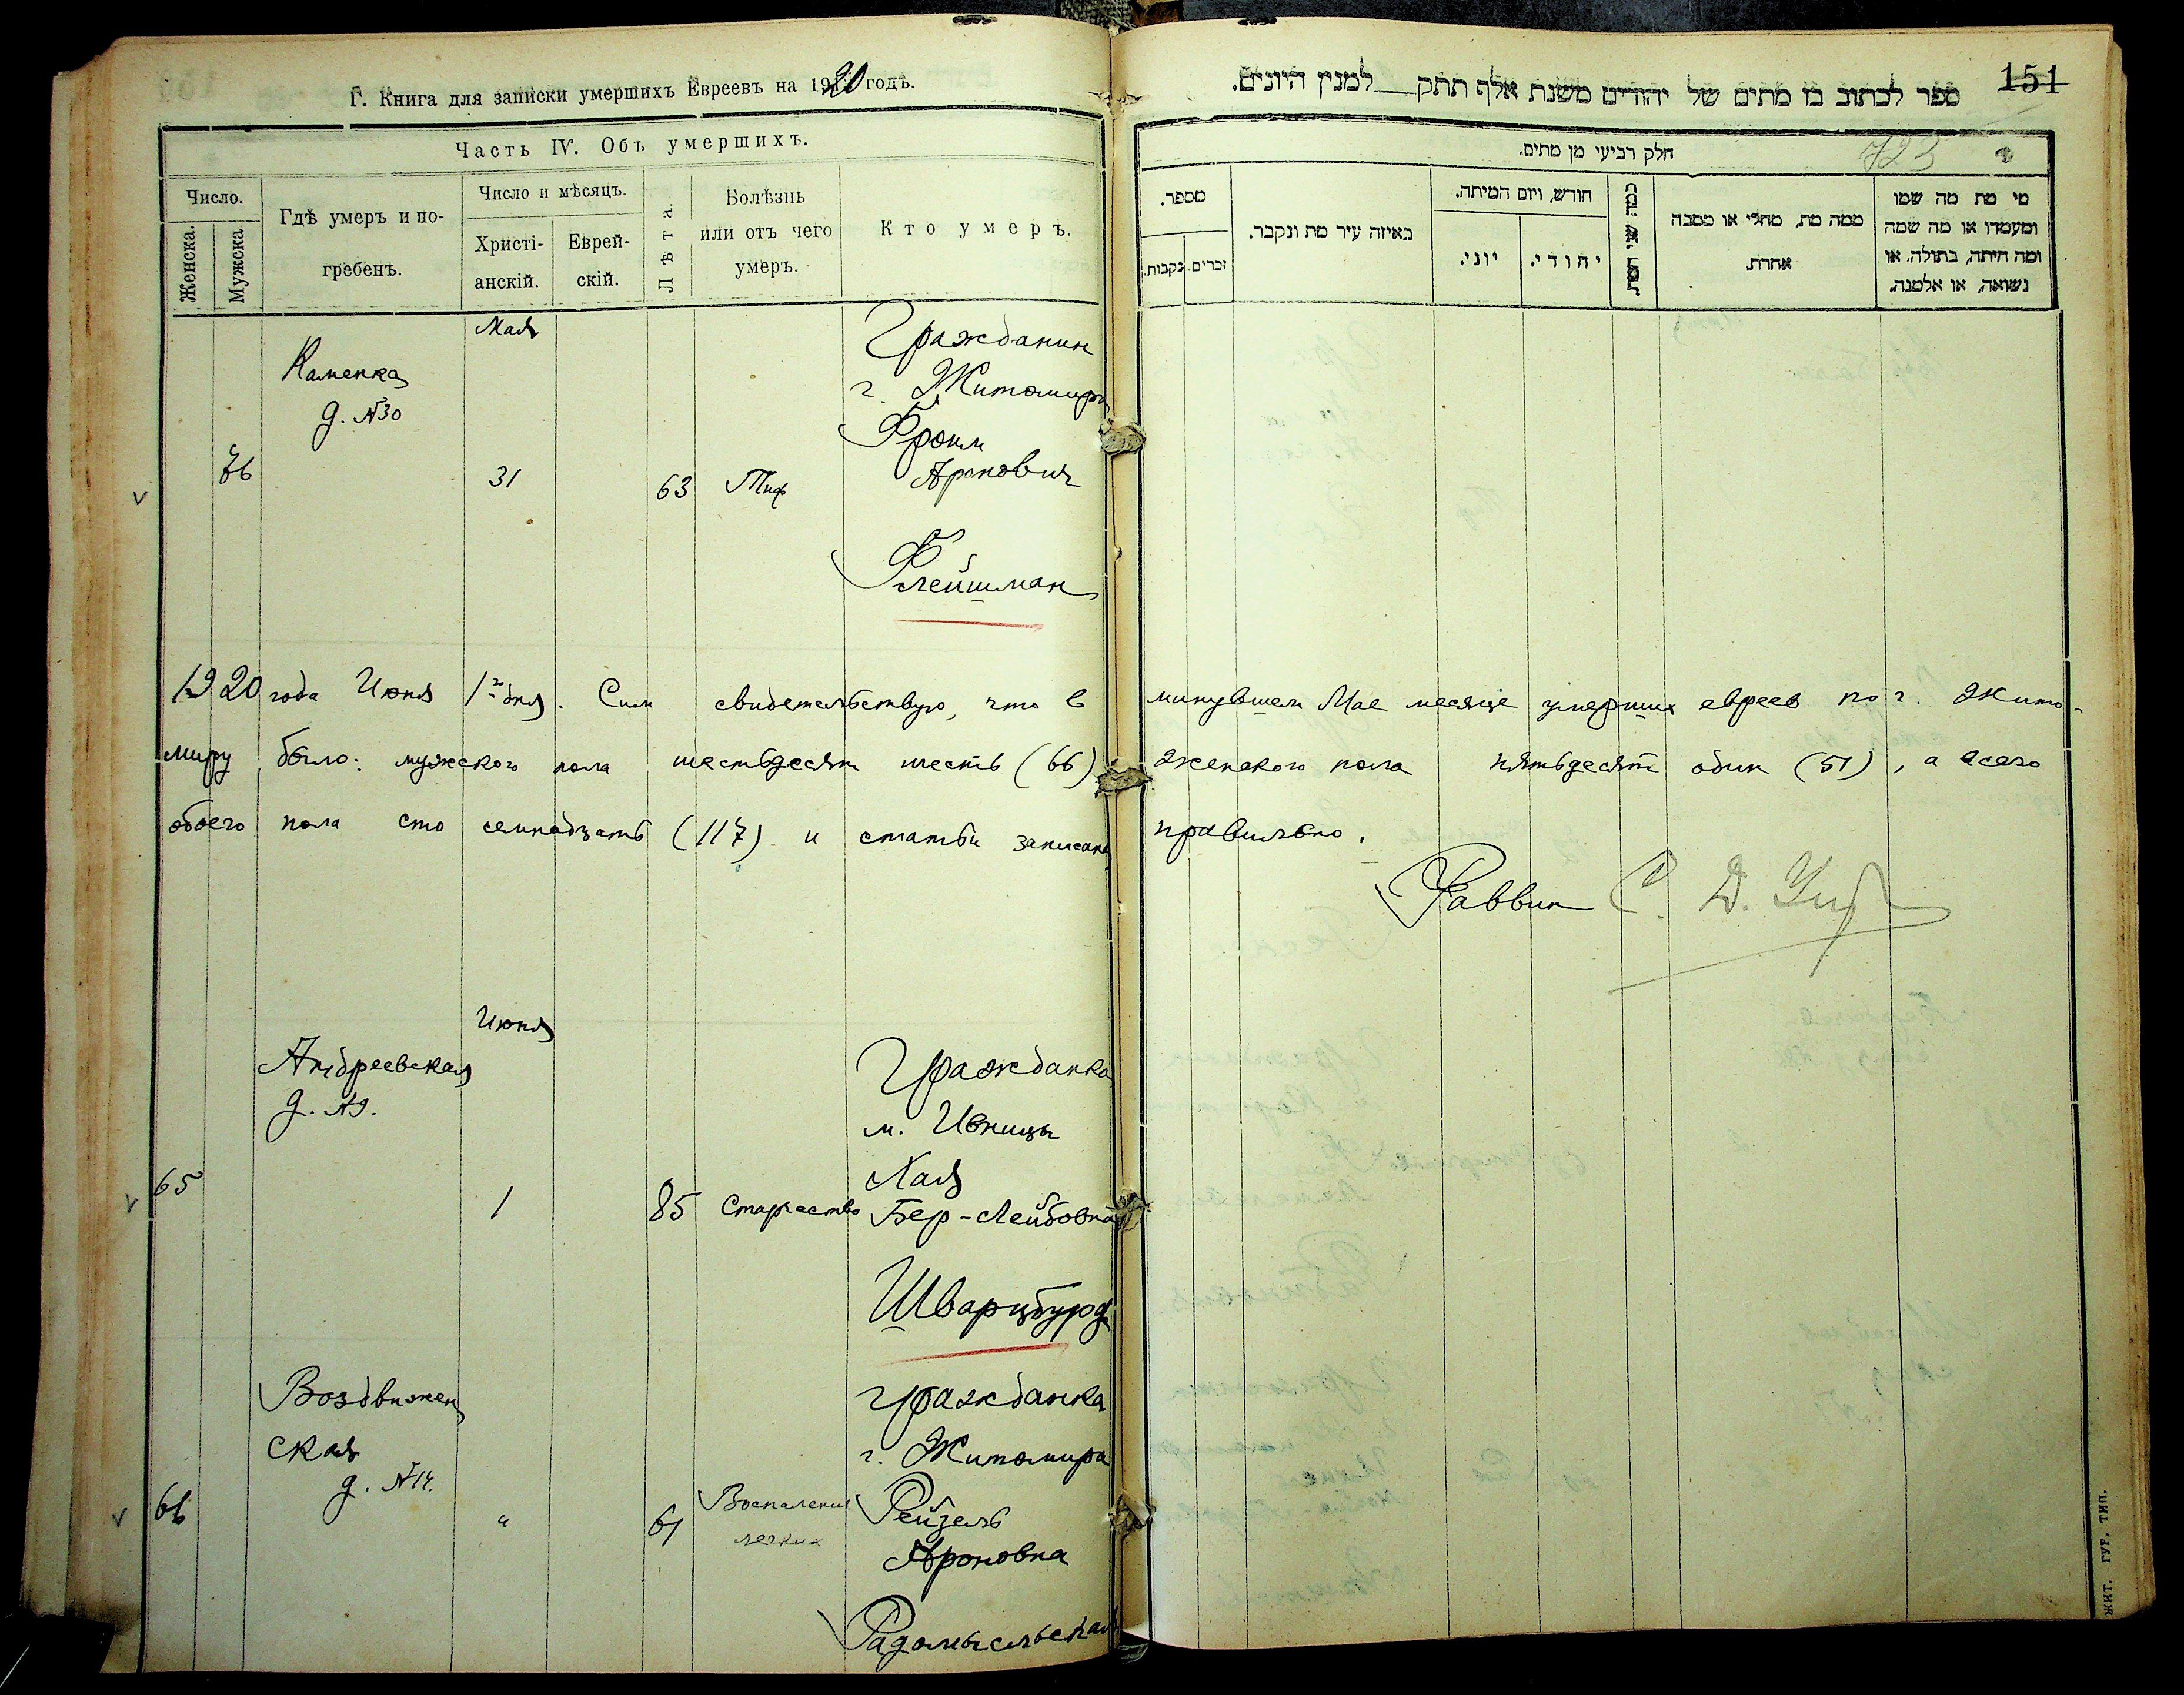 Г. Книга для записки умершихъ Евреевъ на 1920 годъ.
Часть IV. Объ умершихъ.
Число.
Женска.
Мужска.
Гдѣ умеръ и по-
гребенъ.
Число и мѣсяцъ.
Христі-
анскій.
Еврей-
скій.
Лѣта.
Болѣзнь
или отъ чего
умеръ.
Кто умеръ.
Мая
Каменка
д. №30
76
31
63
Тиф
Гражданин
г. Житомира
Фроим
Аронович
Флейшман
1920 года Июня 1го дня. Сим свидетельствую, что в минувшем Мае месяце умерших евреев по г. Жито-
миру было: мужского пола шестьдесят шесть (66) женского пола пятьдесят один (51), а всего
обоего пола сто семнадцать (117) и статьи записаны правильно.
Раввин С. Д.
Июня
Андреевская
д. №9.
65
1
85
Старчество
Гражданка
м. Ивницы
Хая
Бер-Лейбовна
Шварцбурд
Воздвижен
ская
д. №14.
66
"
61
Воспаление
легких
Гражданка
г. Житомира
Рейзель
Ароновна
Радомысльская
ספר לכתוב בו מתים של יהודים משנת אלף תתק למנין היונים.
151
723
חלק רביעי מן מתים.
מספר.
נקבות.
זכרים.
באיזה עיר מת ונקבר.
חודש, ויום המיתה.
יוני.
יהודי.
ממה מת, מחלי או מסבה
אחרת.
מי מת מה שמו
ומעמדו או מה שמה
ומה היתה, בתולה, או
נשואה, או אלמנה.
ЖИТ. ГУБ. ТИП.